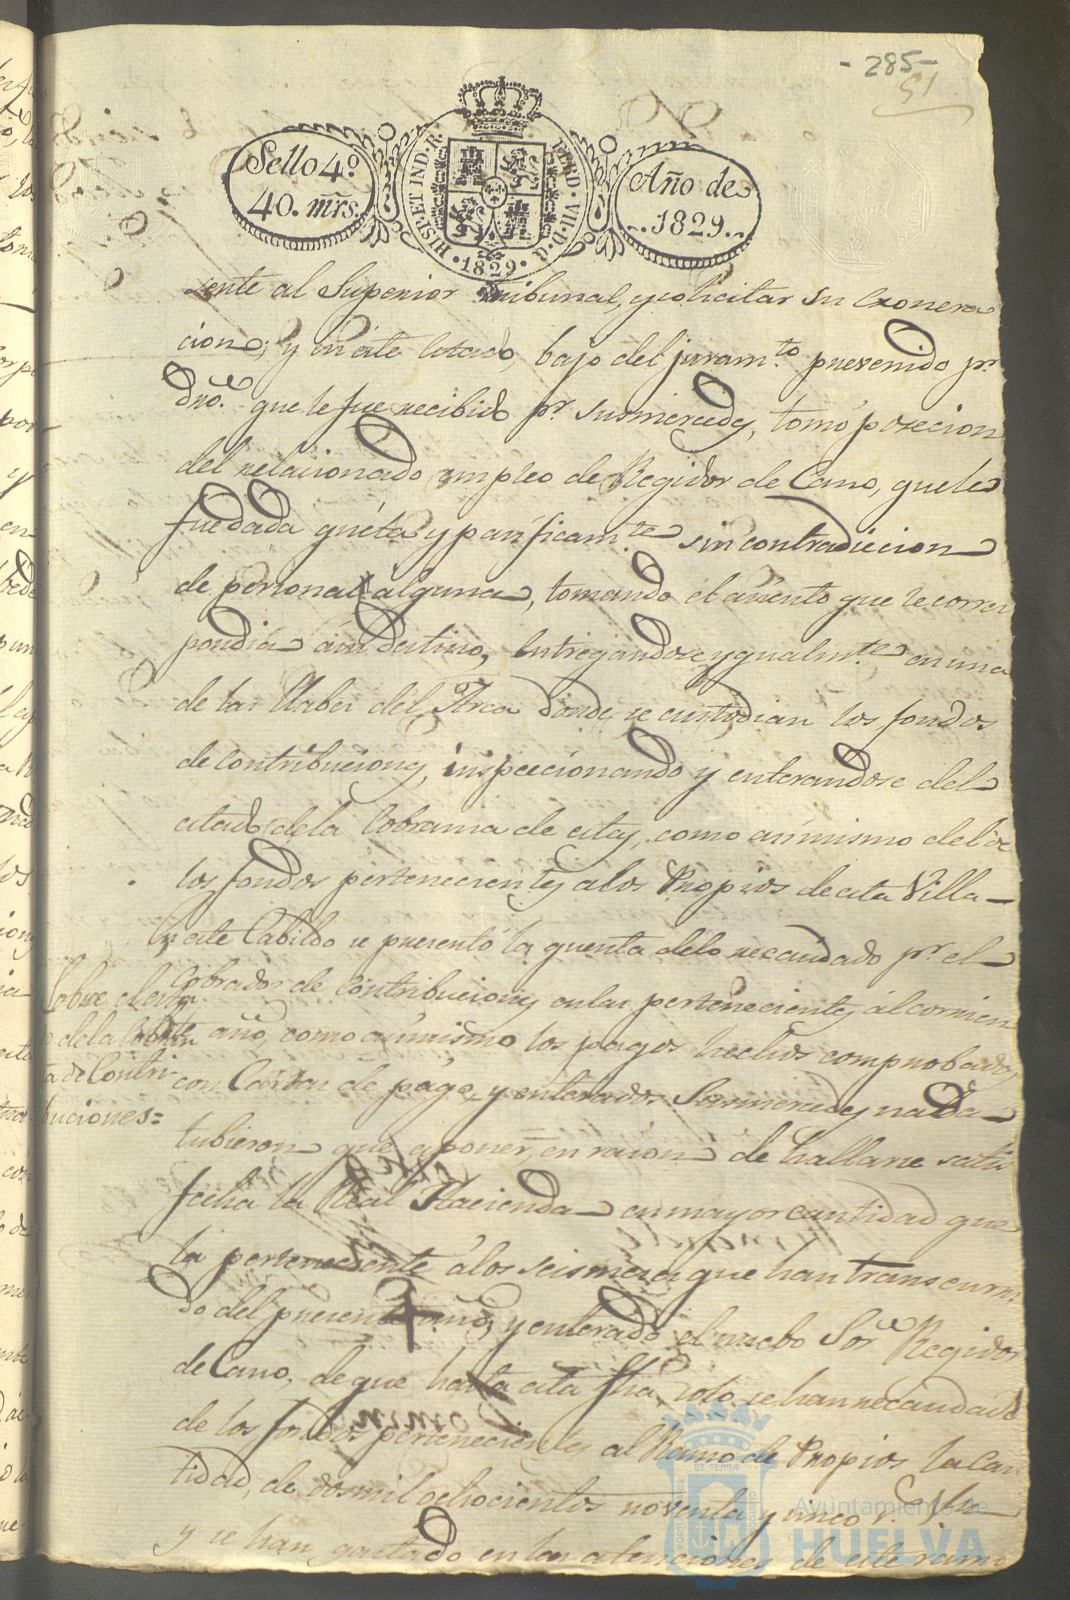 - 285 -
51
Sello 4º
40. mrs.
HISP. ET IND. R.
FERD. VII. D. G.
· 1829 ·
Año de
1829.
sente al Superior Tribunal, y solicitar su Exonera
cion; y en este estado, bajo del juramto. prevenido pr.
dro. que le fue recibido pr. susmercedes, tomó posecion
del relacionado empleo de Regidor de Cano, que le
fue dada quieta y pacificamte. sin contradiccion
de persona alguna, tomando el asiento que le corres
pondia á su destino, entregandose ygualmte. en una
de las llabes del Arca donde se custodian los fondos
de Contribuciones, inspeccionando y enterandose del
estado de la Cobranza de estas, como asimismo del de
los fondos pertenecientes a los Propios de esta Villa
En este Cabildo se presentó la quenta de lo recaudado pr. el
Cobrador de Contribuciones en las pertenecientes al corrien
te año, como asimismo los pagos hechos comprobados
con Cartas de pago, y enterados Susmercedes nada
tubieron que oponer, en razon de hallarse satis
fecha la Real Hacienda en mayor cantidad que
la perteneciente á los seis meses que han transcurri
do del presente año, y enterado el nuebo Sor. Regidor
de Cano, de que hasta esta fha. solo se han recaudado
de los fondos pertenecientes al Ramo de Propios la can
tidad de dos mil ochocientos noventa y cinco r. Vn
y se han gastado en las atenciones de este ramo
Sobre el esta
do de la Cobran
za de Contri
buciones=
Ayuntamiento de
HUELVA